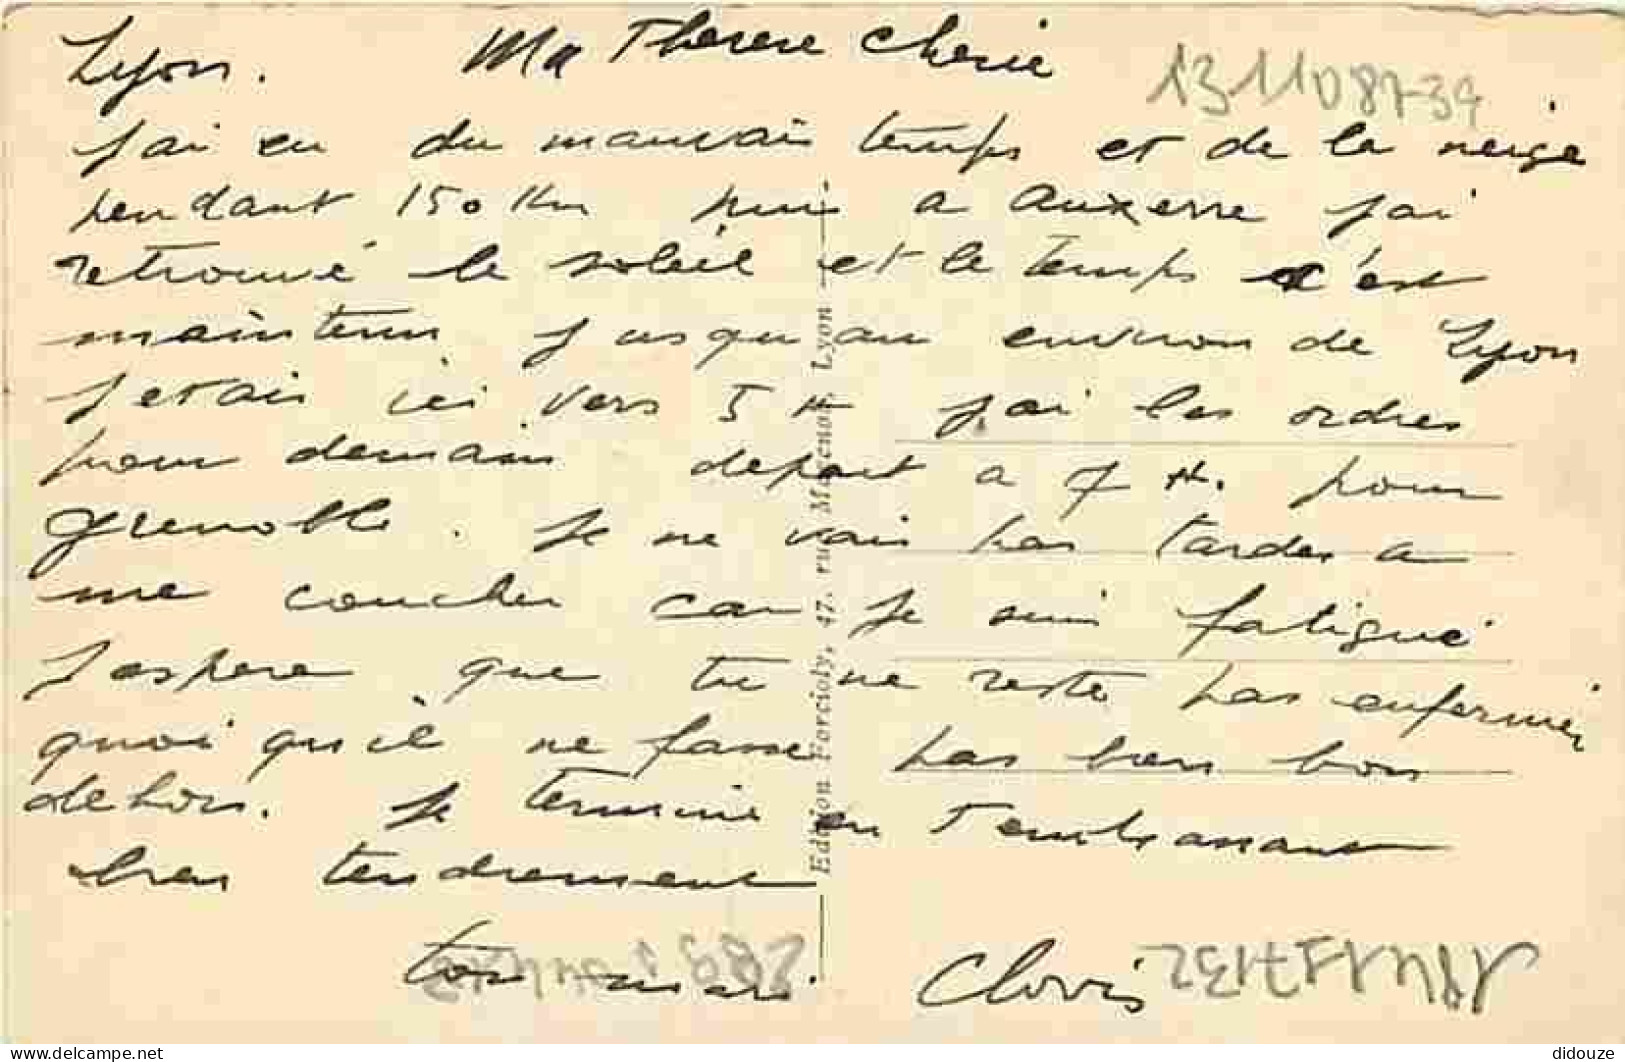 Lyon. Ma Therese Cherie
13110 87-39
J'ai eu du mauvais temps et de la neige
pendant 150 Km puis a Auxerre j'ai
retrouvé le soleil et le temps c'est
maintenu jusqu'au environ de Lyon
J'etais ici vers 5 H j'ai les ordres
pour demain depart a 7 H. pour
Grenoble. Je ne vais pas tarder a
me coucher car je suis fatigué
J'espere que tu ne reste pas enfermée
quoi qu'il ne fasse pas bien bon
dehors. Je termine en T'embrassant
bien tendrement
ton mari Clovis
Edition Forcioly, 47, rue Mercnon Lyon
didouze
delcampe.net